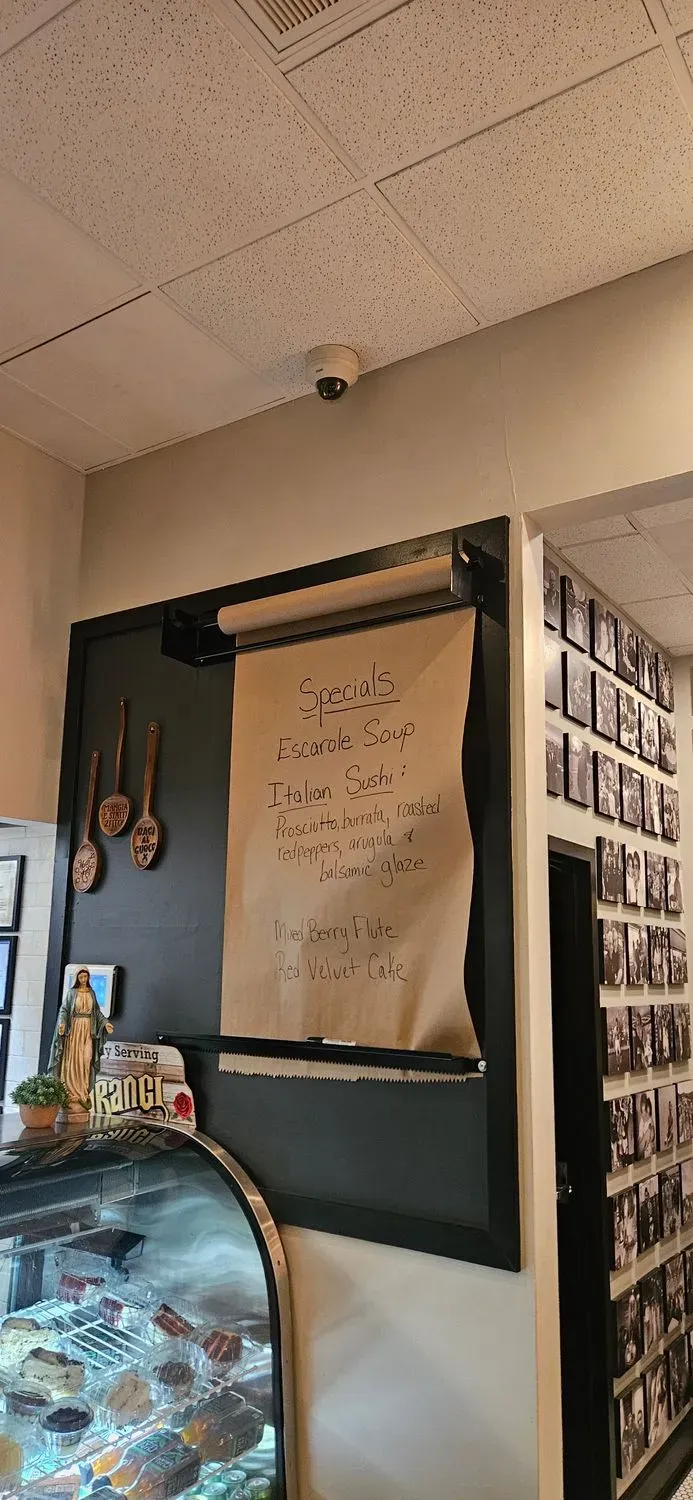 Specials
Escarole Soup
Italian Sushi:
Prosciutto, burrata, roasted
redpeppers, arugula &
balsamic glaze
Mixed Berry Flute
Red Velvet Cake
MANGIA
E STATTI
ZITTO
BACI
AL
CUOCO
X
Serving